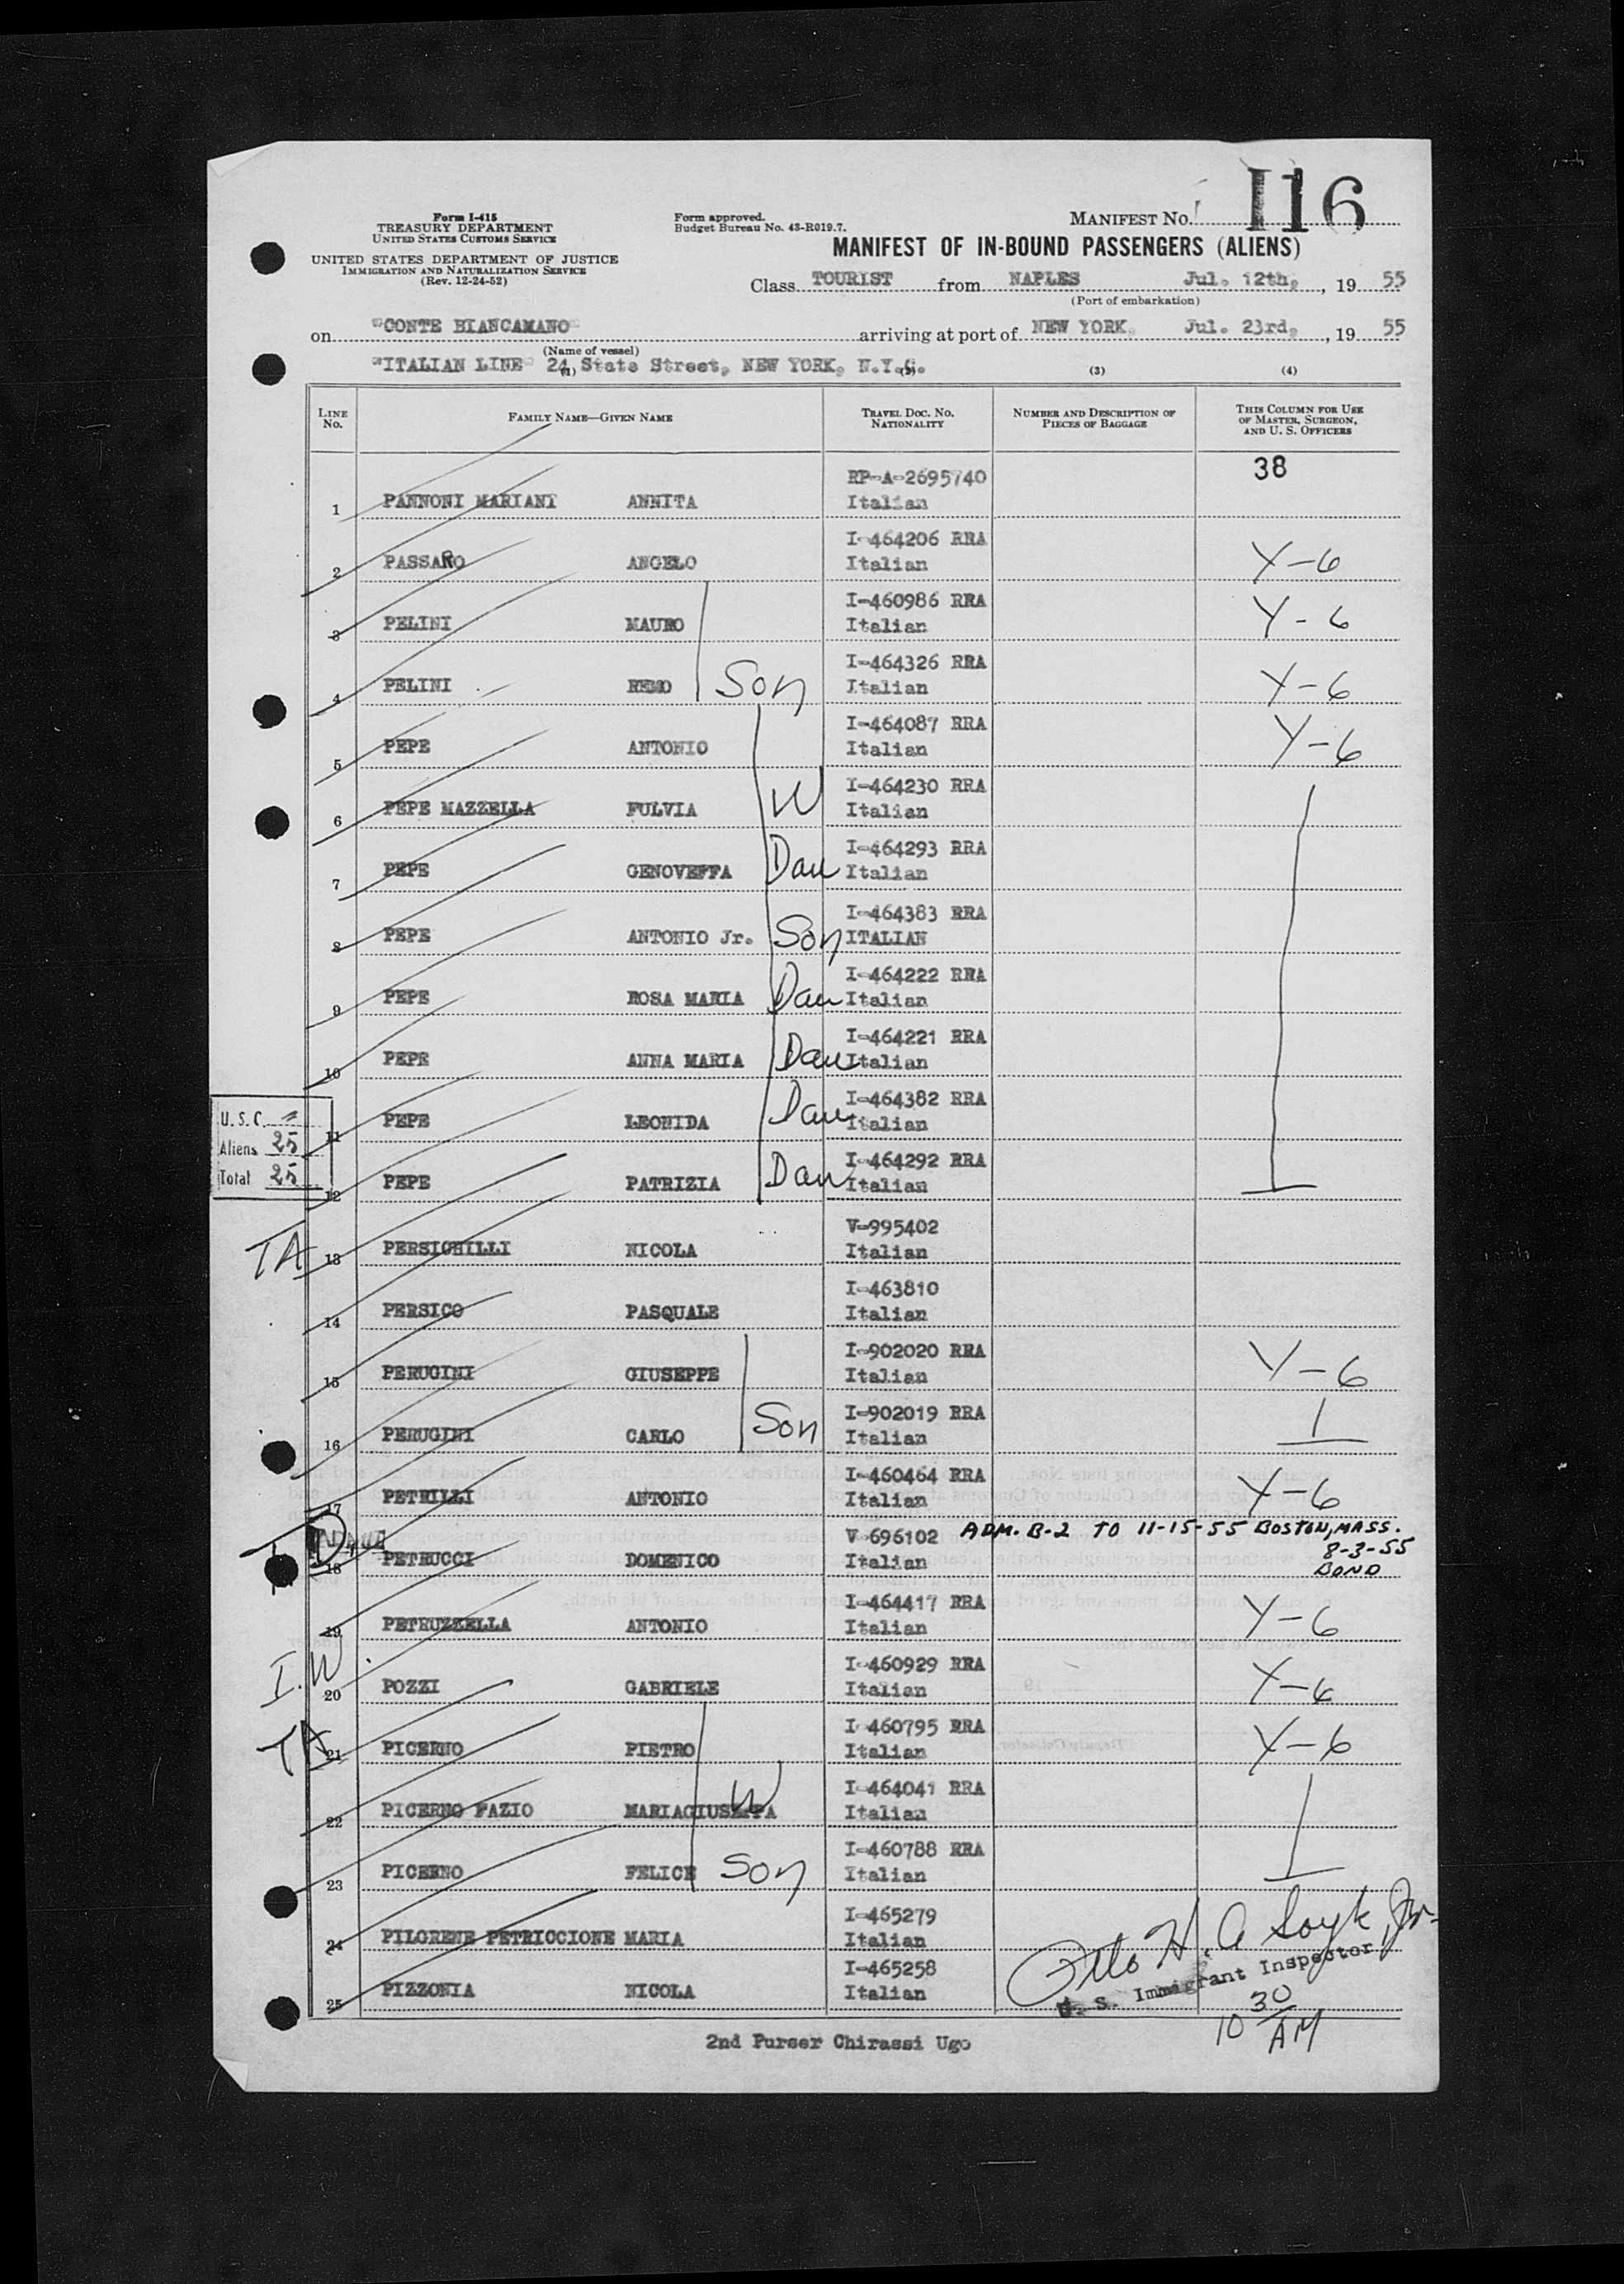 I16
Form I-415
TREASURY DEPARTMENT
UNITED STATES CUSTOMS SERVICE
UNITED STATES DEPARTMENT OF JUSTICE
IMMIGRATION AND NATURALIZATION SERVICE
(Rev. 12-24-52)
Form approved.
Budget Bureau No. 43-R019.7.
MANIFEST NO.
MANIFEST OF IN-BOUND PASSENGERS (ALIENS)
Class TOURIST from NAPLES Jul. 12th, , 19 55
(Port of embarkation)
on "CONTE BIANCAMANO" arriving at port of NEW YORK, Jul. 23rd, , 19 55
(Name of vessel)
"ITALIAN LINE" 24 State Street, NEW YORK, N.Y.C.
(3) (4)
LINE No. FAMILY NAME—GIVEN NAME TRAVEL DOC. NO. NATIONALITY NUMBER AND DESCRIPTION OF PIECES OF BAGGAGE THIS COLUMN FOR USE OF MASTER, SURGEON, AND U. S. OFFICERS
RP-A-2695740 38
1 PANNONI MARIANI ANNITA Italian
I-464206 RRA
2 PASSARO ANGELO Italian Y-6
I-460986 RRA
3 PELINI MAURO Italian Y-6
I-464326 RRA
4 PELINI REMO Son Italian Y-6
I-464087 RRA
5 PEPE ANTONIO Italian Y-6
I-464230 RRA
6 PEPE MAZZELLA FULVIA W Italian
I-464293 RRA
7 PEPE GENOVEFFA Dau Italian
I-464383 RRA
8 PEPE ANTONIO Jr. Son ITALIAN
I-464222 RRA
9 PEPE ROSA MARIA Dau Italian
I-464221 RRA
10 PEPE ANNA MARIA Dau Italian
I-464382 RRA
11 PEPE LEONIDA Dau Italian
U. S. C.
Aliens 25
Total 25
I-464292 RRA
12 PEPE PATRIZIA Dau Italian
V-995402
TA 13 PERSICHILLI NICOLA Italian
I-463810
14 PERSICO PASQUALE Italian
I-902020 RRA
15 PERUGINI GIUSEPPE Italian Y-6
I-902019 RRA
16 PERUGINI CARLO Son Italian
I-460464 RRA
17 PETRILLI ANTONIO Italian Y-6
V-696102 ADM. B-2 TO 11-15-55 BOSTON, MASS.
8-3-55
18 PETRUCCI DOMENICO Italian BOND
I-464417 RRA
19 PETRUZZELLA ANTONIO Italian Y-6
I-460929 RRA
I.W. 20 POZZI GABRIELE Italian Y-6
I-460795 RRA
TA 21 PICERNO PIETRO Italian Y-6
I-464041 RRA
22 PICERNO FAZIO MARIAGIUSEPPA W Italian
I-460788 RRA
23 PICERNO FELICE Son Italian
I-465279
24 PILORENE PETRICCIONE MARIA Italian
I-465258
25 PIZZONIA NICOLA Italian
U. S. Immigrant Inspector
10 30 AM
2nd Purser Chirassi Ugo